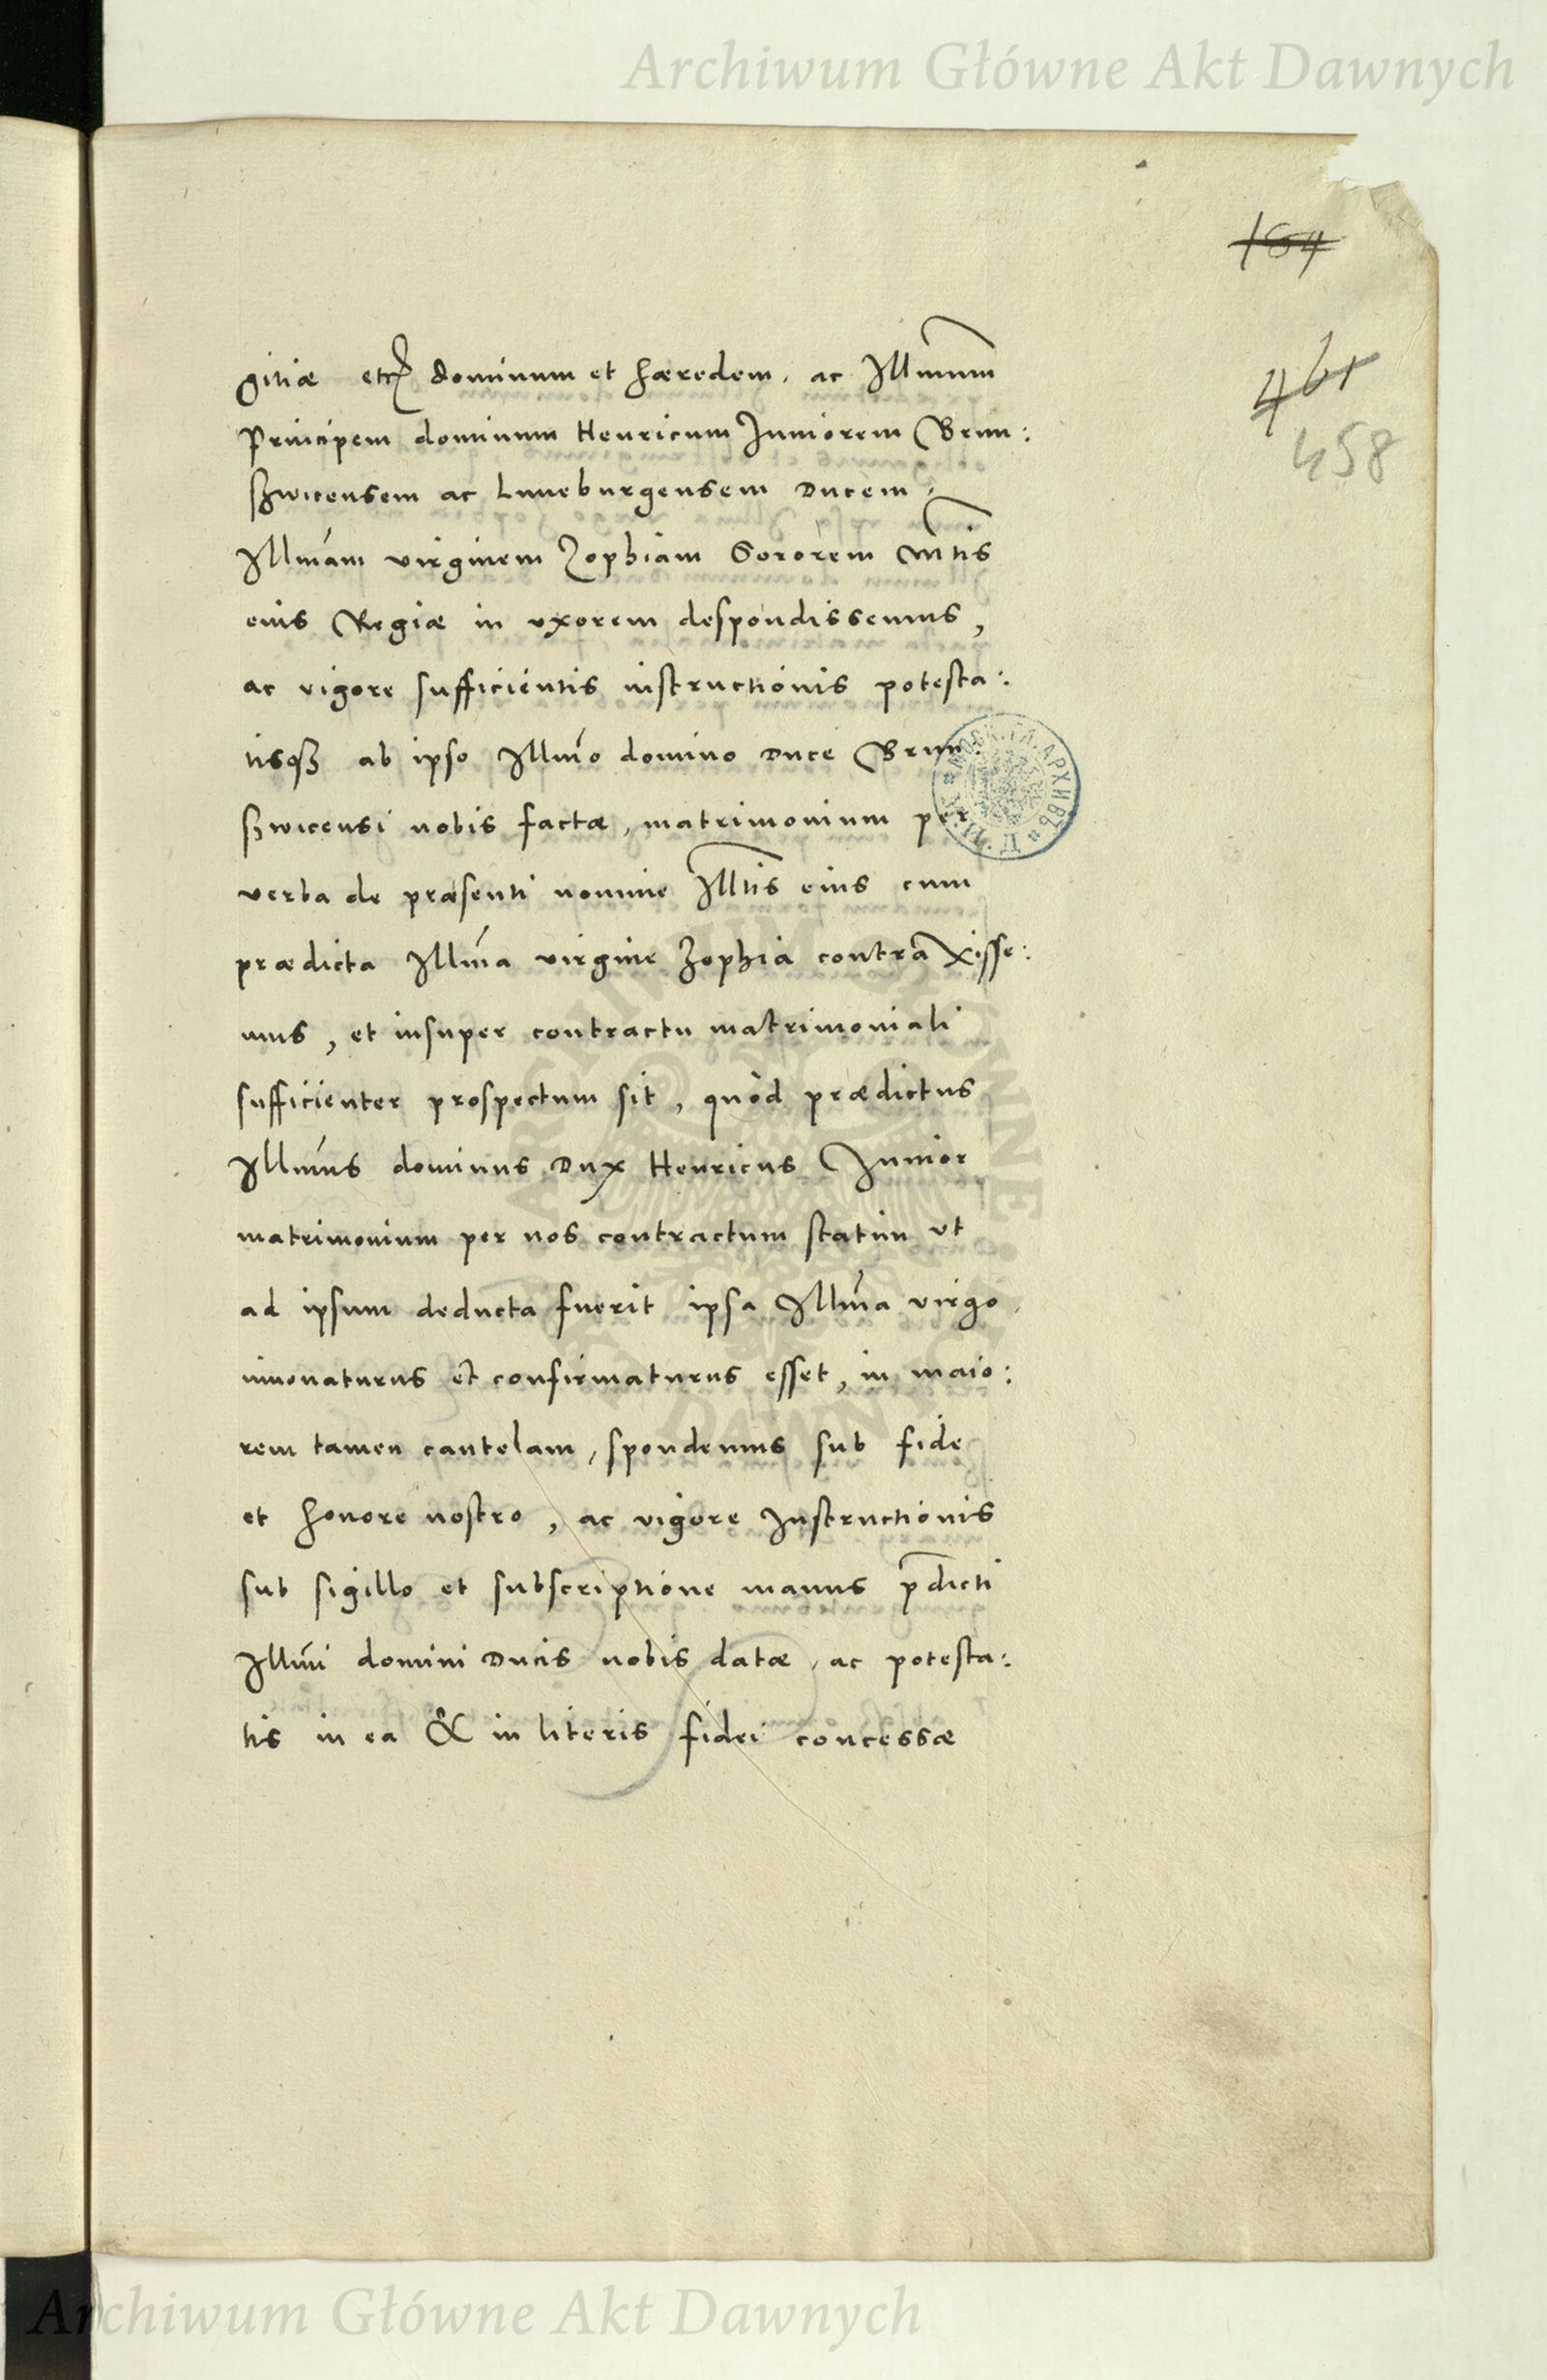 Archiwum Główne Akt Dawnych
164
461
458
gitiæ etc dominum et hæredem, ac Illmum
Principem dominum Henricum Juniorem Brun:
szwicensem ac Luneburgensem Ducem,
Illmam virginem Zophiam Sororem Mtis
eius Regiæ in vxorem despondissemus,
ac vigore sufficientis instructionis potesta:
tisq3 ab ipso Illmo domino Duce Brun:
szwicensi nobis factæ, matrimonium per
verba de præsenti nomine Illtis eius cum
prædicta Illma virgine Zophia contraxisse:
mus, et insuper contractu matrimoniali
sufficienter prospectum sit, quòd prædictus
Illmus dominus Dux Henricus Junior
matrimonium per nos contractum statim vt
ad ipsum deducta fuerit ipsa Illma virgo,
innouaturus et confirmaturus esset, in maio:
rem tamen cautelam, spondemus sub fide
et honore nostro, ac vigore Instructionis
sub sigillo et subscriptione manus pdicti
Illmi domini Ducis nobis datæ, ac potesta:
tis in ea & in literis fidei concessæ
Archiwum Główne Akt Dawnych